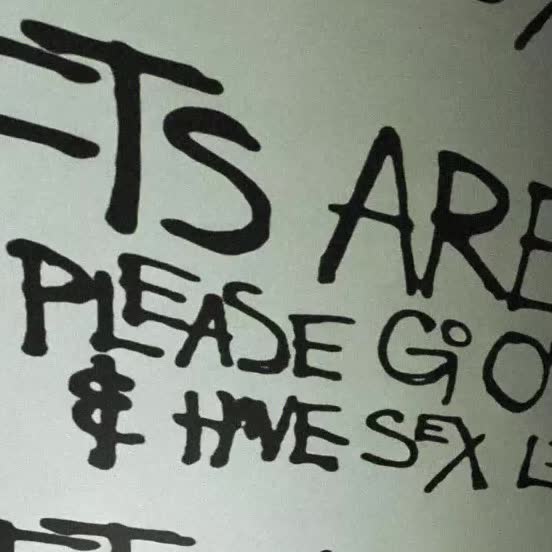 ETS ARE
PLEASE GiO
& HAVE SEX